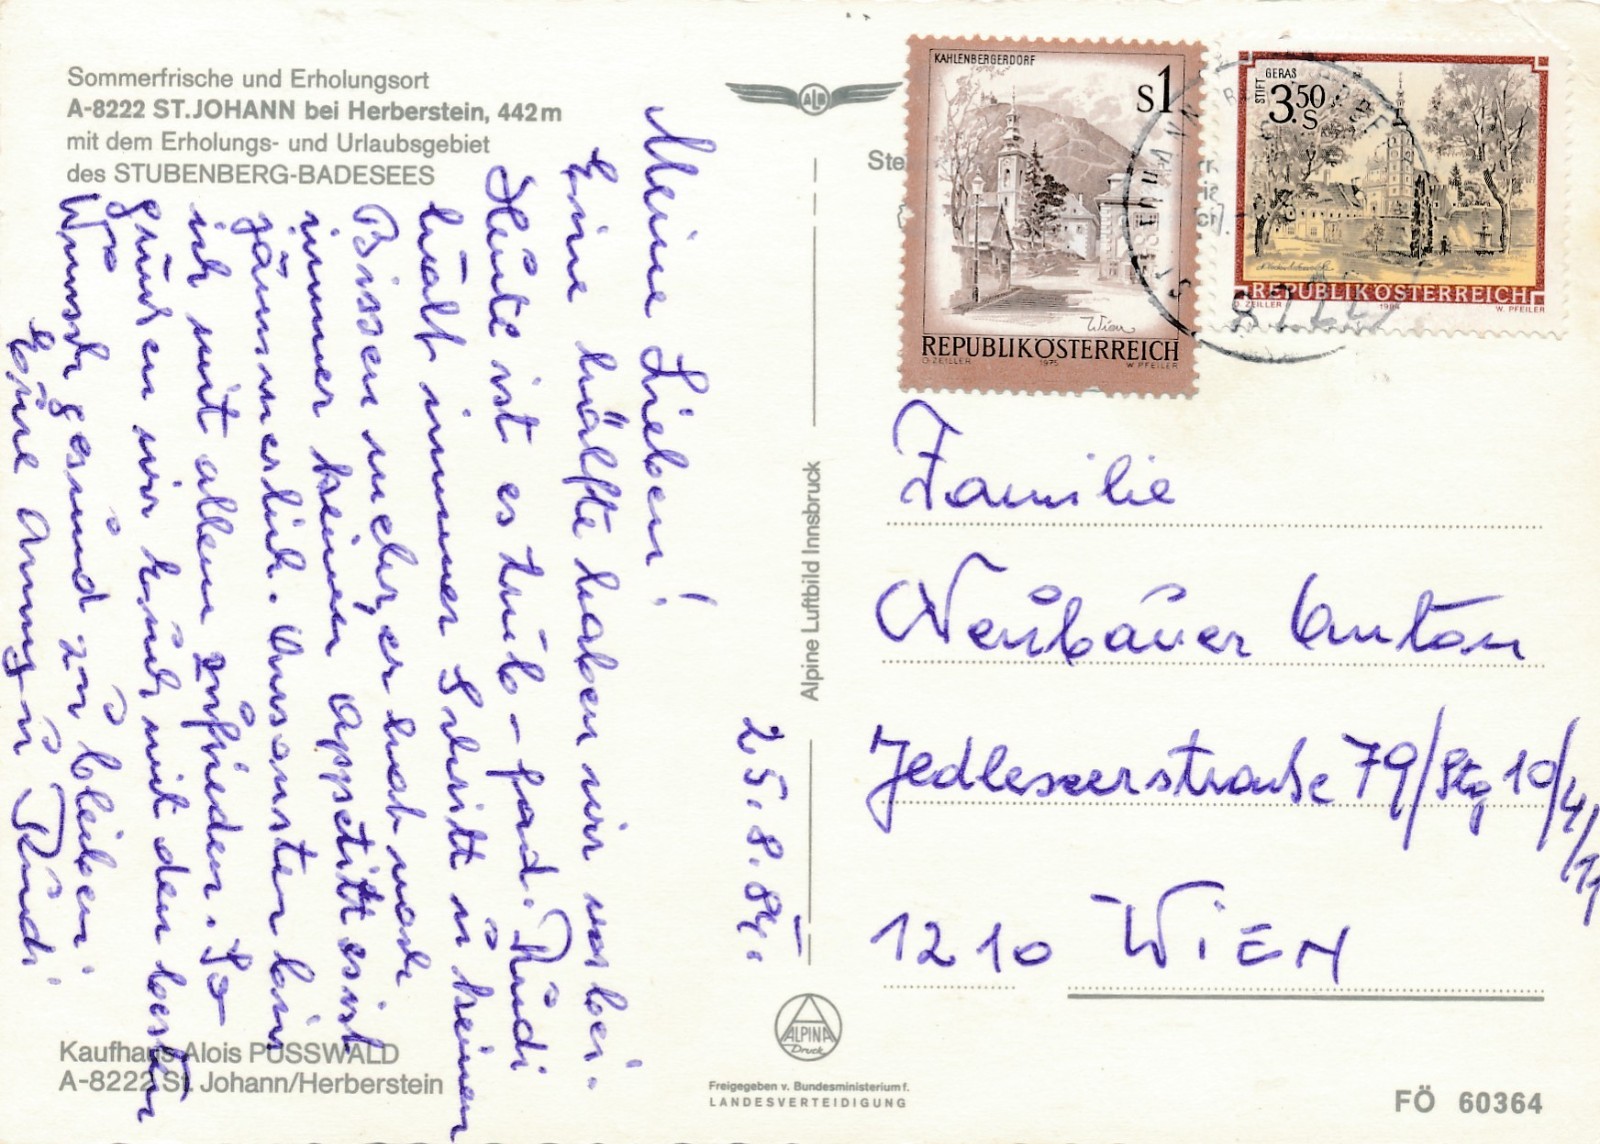 Sommerfrische und Erholungsort
A-8222 ST.JOHANN bei Herberstein, 442m
mit dem Erholungs- und Urlaubsgebiet
des STUBENBERG-BADESEES
Meine Lieben!
Eine hälfte haben wir vorbei.
Heute ist es trüb – fad. Rudi
Bissen mehr, er hat noch
immer keinen Appetitt esist
jämmerlich. Ansonsten bin
ich mit allem zufrieden. So
Wunsch gesund zu bleiben
Eure Anny u Rudi
25.8.84.
Kaufhaus Alois PUSSWALD
A-8222 St. Johann/Herberstein
Alpine Luftbild Innsbruck
ALPINA
Druck
Freigegeben v. Bundesministerium f.
LANDESVERTEIDIGUNG
KAHLENBERGERDORF
S1
Wien
REPUBLIK ÖSTERREICH
O. ZEILLER 1975 W. PFEILER
STIFT GERAS
3.50 S
REPUBLIK ÖSTERREICH
O. ZEILLER 1984 W. PFEILER
8222
Familie
Neubauer Anton
Jedleseerstraße 79/Stg 10/4/11
1210 WIEN
FÖ 60364